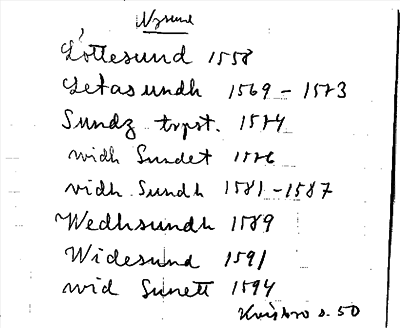 Nysund
Gottesund 1558
Getasundh 1569 - 1573
Sundz torpst. 1574
widh Sundet 1576
vidh Sundh 1581 - 1587
Wedhsundh 1589
Widesund 1591
wid Sunett 1594
s. 50